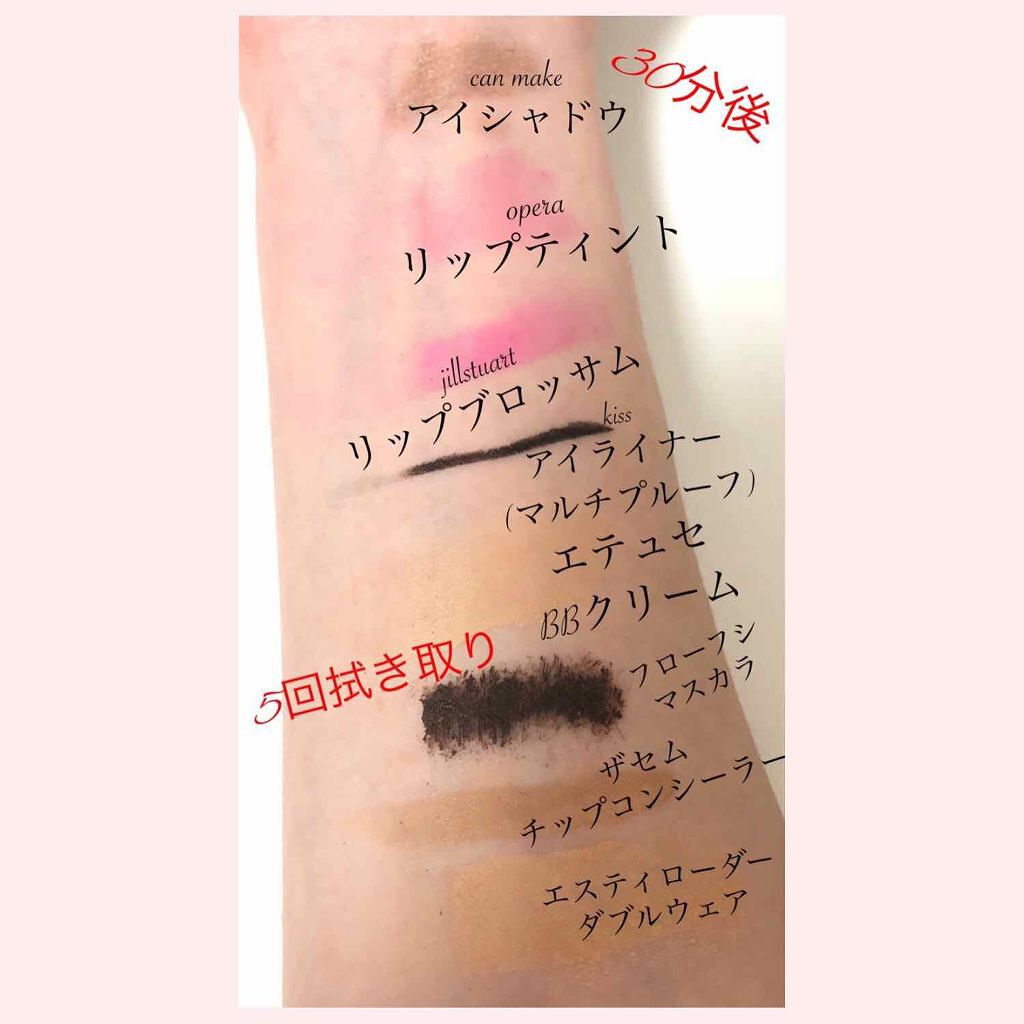 can make
アイシャドウ
30分後
opera
リップティント
jillstuart
リップブロッサム
kiss
アイライナー
(マルチプルーフ)
エテュセ
BBクリーム
5回拭き取り
フローフシ
マスカラ
ザセム
チップコンシーラー
エスティローダー
ダブルウェア